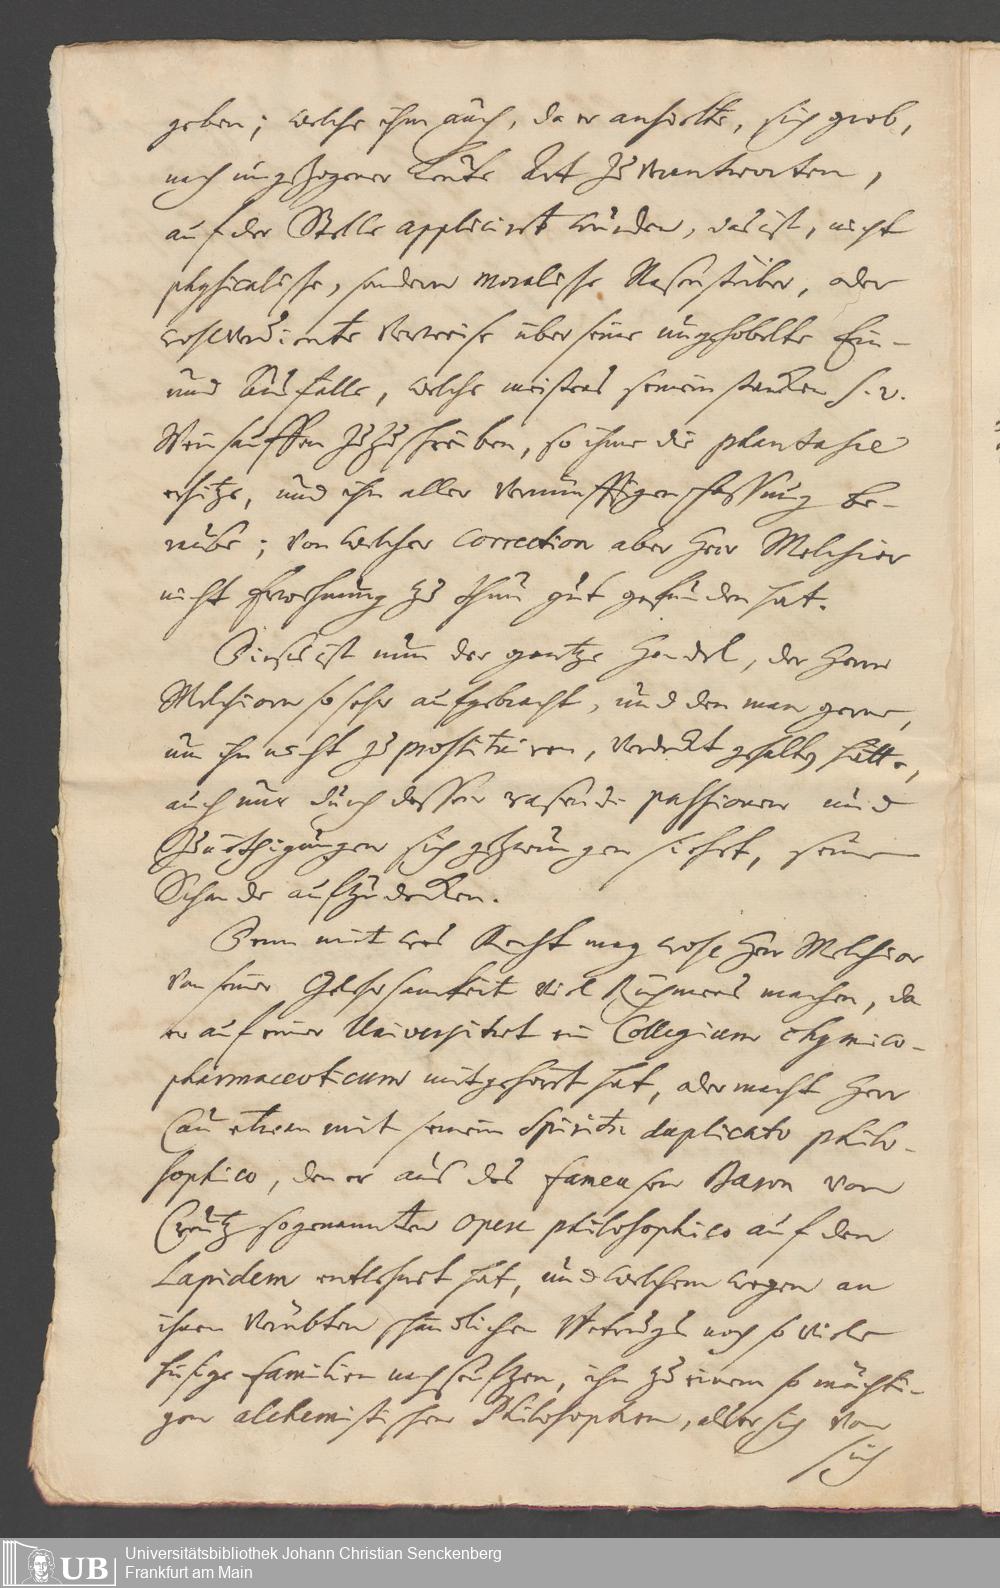 geben; welche ihm auch, da er anhielte, sich grob,
nach ungezogener Leute Art zu verantworten,
auf der Stelle applicirt wurden, das ist, nicht
physicalische, sondern moralische Nasenstüber, oder
wohlverdiente Verweise über seine ungehobelte Ein-
und Ausfälle, welche meistens seinem starken s. v.
Weinsauffen zuzuschreiben, so ihme die phantasie
erhitze, und ihn aller vernünfftigen Fassung be-
raube; von welcher correction aber Herr Melchior
nicht Erwehnung zu thun gut gefunden hat.
Dieses ist nun der gantze Handel, der Herrn
Melchiorn so sehr aufgebracht, und den man gerne,
um ihn nicht zu prostituiren, verdeckt gehalten hätte,
auch nur durch dessen rasende passionen und
Zunöthigungen sich gezwungen siehet, seine
Schande aufzudecken.
Denn mit was Recht mag wohl Herr Melchior
von seiner Gelehrsamkeit viel Rühmens machen, da
er auf einer Universitaet ein Collegium chymico-
pharmaceuticum mitgehört hat, oder macht Herr
mit seinem Spiritu duplicato philo-
sophico, den er aus des fameusen Baron von
Creutz sogenannten opere philosophico auf den
Lapidem entlehnet hat, und welchem wegen an
ihnen verübten schändlichen Betrugs noch so viele
hiesige familien nachseufzen, ihn zu einem so mächti-
gen alchemistischen Philosophen, als er sich von
sich
Universitätsbibliothek Johann Christian Senckenberg
Frankfurt am Main
UB